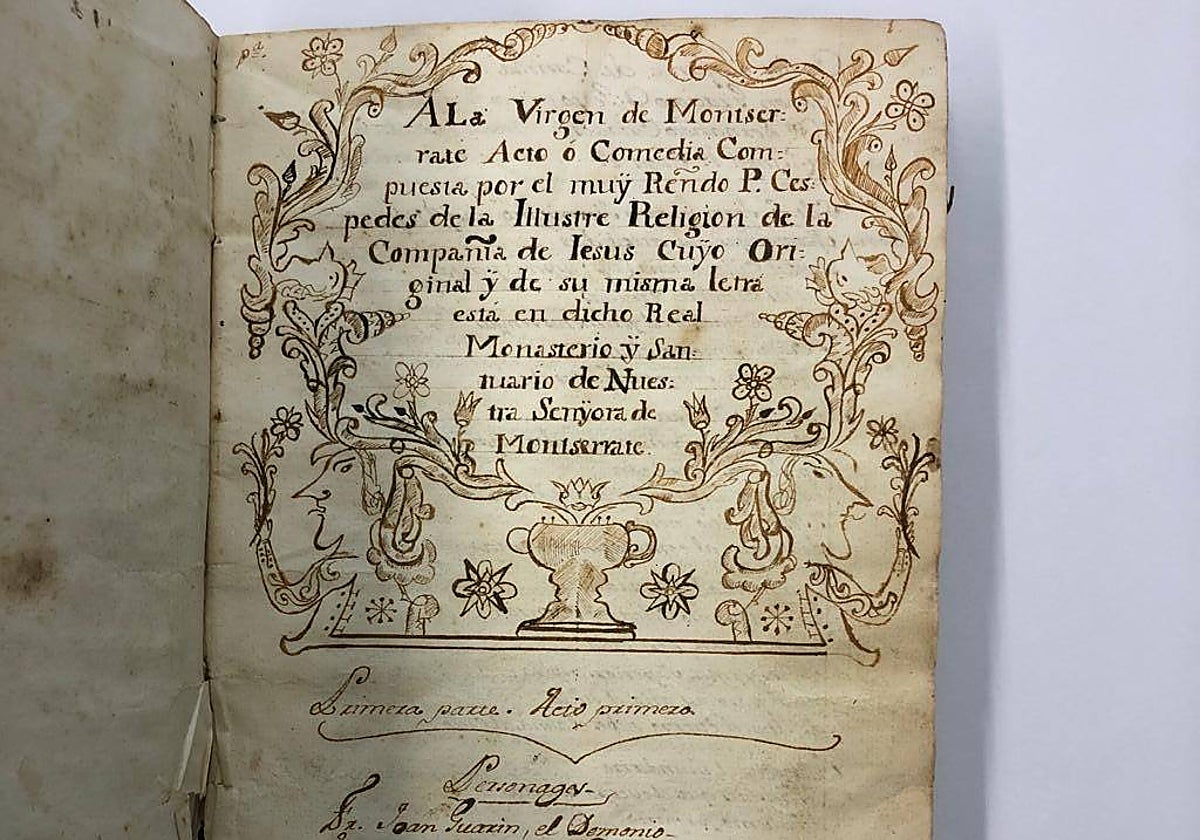 pª.
A La Virgen de Montser:
rate Acto ó Comedia Com:
puesta por el muÿ Reñdo P. Ces:
pedes de la Illustre Religion de la
Compañia de Iesus Cuÿo Ori:
ginal ÿ de su misma letra
está en dicho Real
Monasterio ÿ San:
tuario de Nues:
tra Senÿora de
Montserrate.
Primera parte. Acto primero.
Personages
Fr. Joan Guarin, el Demonio